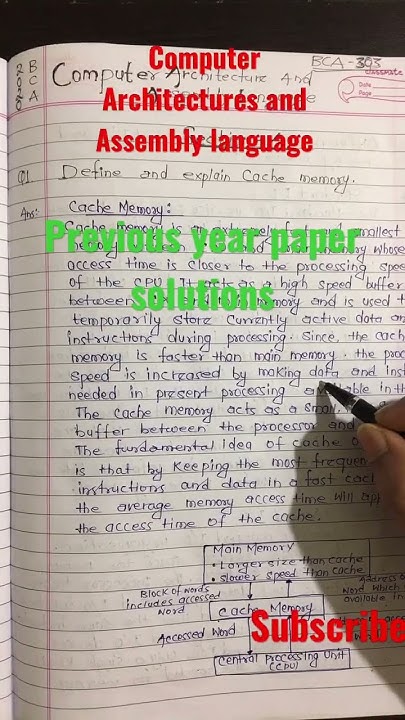 BCA-303
classmate
Date
Page
2020 BCA
Computer Architecture And
Computer
Architectures and
Assembly language
Q1. Define and explain Cache memory.
Ans: Cache Memory:
Cache memory is
smallest
Previous year paper
solutions
whose
access time is closer to the processing spee
of the CPU. It acts as a high speed buffer
between
memory and is used t
temporarily store currently active data an
instructions during processing. Since, the cache
memory is faster than main memory, the proc
speed is increased by making data and inst
needed in present processing available in th
The cache memory acts as a small
buffer between the processor and
The fundamental idea of cache o
is that by keeping the most frequen
instructions and data in a fast cach
the average memory access time will app
the access time of the cache.
Main Memory
• Larger size than cache
• slower speed than cache
Block of words
includes accessed
word
Address o
word which
available in
Cache Memory
Accessed word
Subscribe
Central Processing Unit
(CPU)